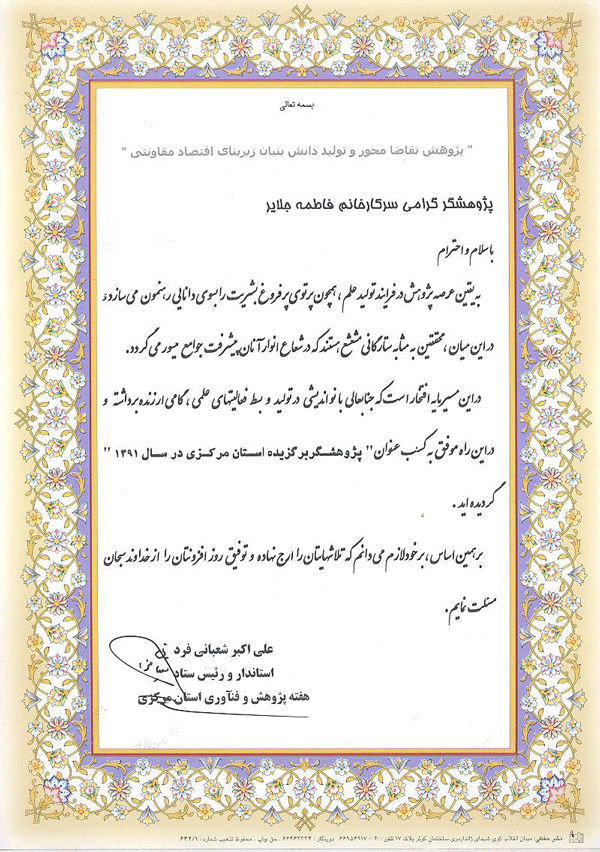 بسمه تعالی
" پژوهش تقاضا محور و تولید دانش بنیان زیربنای اقتصاد مقاومتی "
پژوهشگر گرامی سرکارخانم فاطمه جلایر
باسلام و احترام
به یقین عرصه پژوهش در فرایند تولید علم ، همچون پرتوی پر فروغ بشریت را بسوی دانایی رهنمون می سازد و
در این میان ، محققین به مثابه ستارگانی مشعشع هستند که در شعاع انوار آنان پیشرفت جوامع میسور می گردد.
در این مسیر مایه افتخار است که جنابعالی با نو اندیشی در تولید و بسط فعالیتهای علمی ، گامی ارزنده برداشته و
در این راه موفق به کسب عنوان " پژوهشگر برگزیده استان مرکزی در سال ۱۳۹۱ "
گردیده اید .
بر همین اساس ، بر خود لازم می دانم که تلاشهایتان را ارج نهاده و توفیق روز افزونتان را از خداوند سبحان
مسئلت نمایم .
علی اکبر شعبانی فرد
استاندار و رئیس ستاد
هفته پژوهش و فنآوری استان مرکزی
نشر حفظی: میدان انقلاب کوی شهدای ژاندارمری ساختمان کوثر پلاک ۱۷ تلفن : ۲۰ - ۶۶۹۵۶۹۱۷ دورنگار : ۶۶۴۶۲۲۲۴ حق چاپ ، محفوظ تذهیب شماره : ۶۴۲/۱